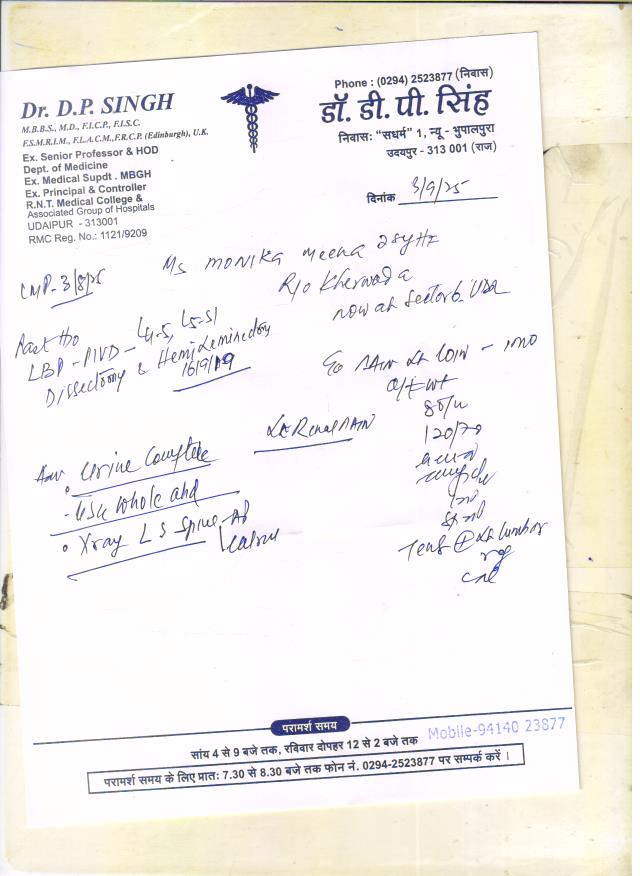 Dr. D.P. SINGH
M.B.B.S., M.D., F.I.C.P., F.I.S.C.
F.S.M.R.I.M., F.L.A.C.M., F.R.C.P. (Edinburgh), U.K.
Ex. Senior Professor & HOD
Dept. of Medicine
Ex. Medical Supdt . MBGH
Ex. Principal & Controller
R.N.T. Medical College &
Associated Group of Hospitals
UDAIPUR - 313001
RMC Reg. No.: 1121/9209
Phone : (0294) 2523877 (निवास)
डॉ. डी. पी. सिंह
निवास: "सधर्म" 1, न्यू - भुपालपुरा
उदयपुर - 313 001 (राज)
दिनांक 3/9/25
Ms Monika Meena 28y
R/o Kherwada
now at Sector 6 UDR
LMP - 3/8/25
Past H/o
LBP - PIVD - L4-5, L5-S1
Dissectomy & Hemileminectomy
16/9/19
C/o PAIN Lt LOIN - 1mo
O/E Wt
120/70
Lt Renal PAIN
Adv Urine Complete
USG whole abd
Xray LS Spine AP
Lateral
Tend Lt lumbar
reg
परामर्श समय
सांय 4 से 9 बजे तक, रविवार दोपहर 12 से 2 बजे तक
Mobile-94140 23877
परामर्श समय के लिए प्रातः 7.30 से 8.30 बजे तक फोन नं. 0294-2523877 पर सम्पर्क करें ।